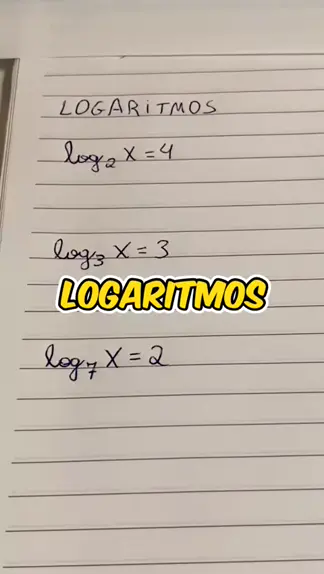 LOGARITMOS
log₂ X = 4
log₃ X = 3
LOGARITMOS
log₇ X = 2